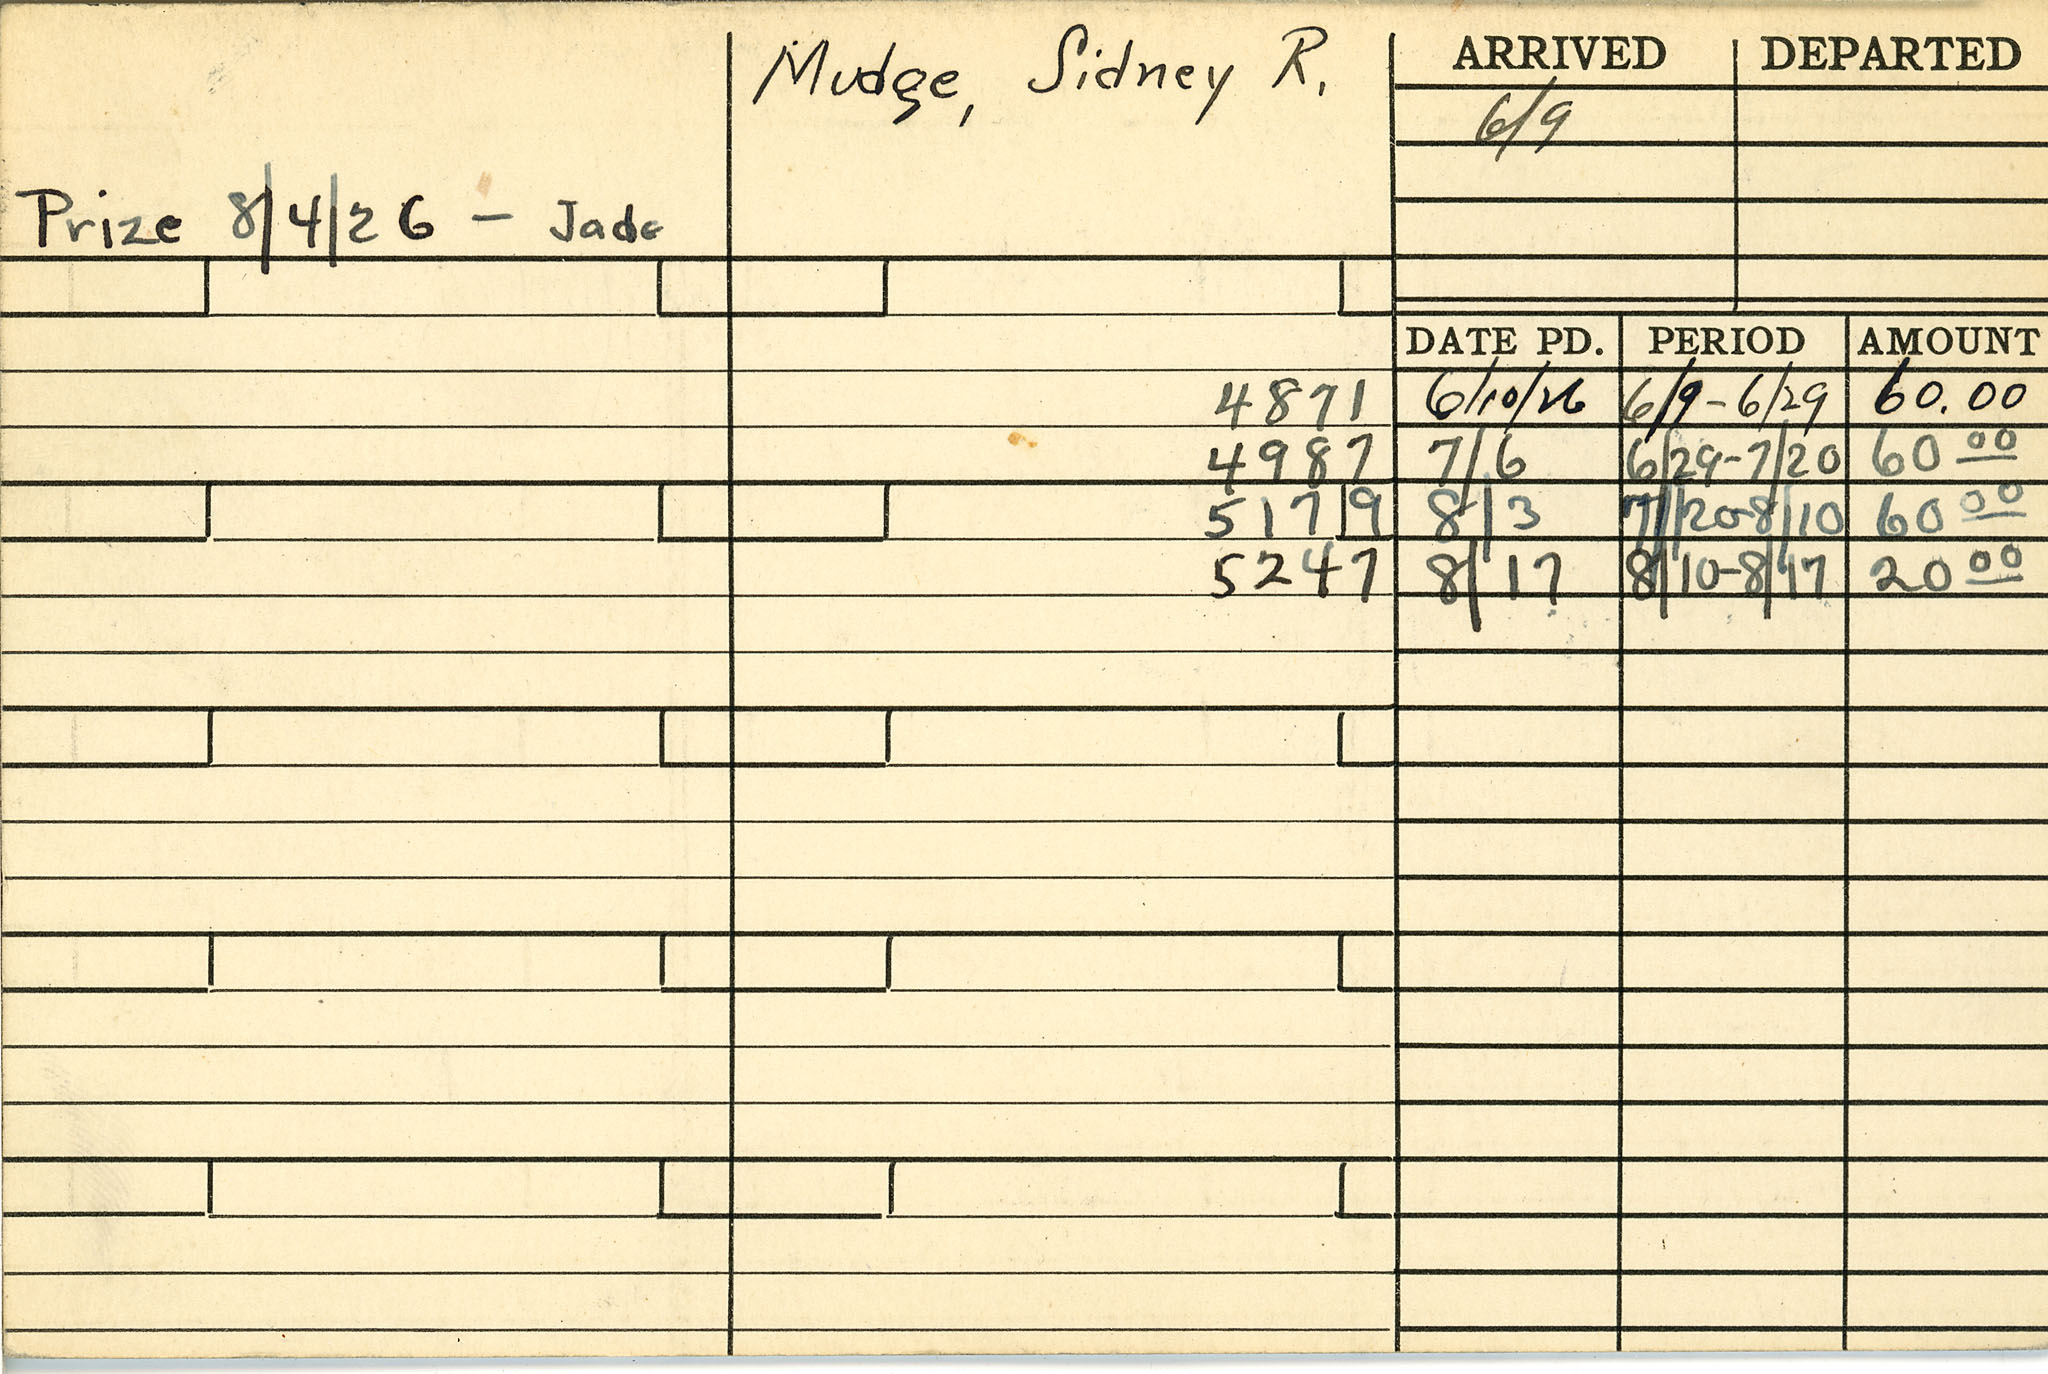 Mudge, Sidney R.
ARRIVED DEPARTED
6/9
Prize 8/4/26 - Jade
DATE PD. PERIOD AMOUNT
4871 6/10/26 6/9-6/29 60.00
4987 7/6 6/29-7/20 60 00
5179 8/3 7/20-8/10 60 00
5247 8/17 8/10-8/17 20 00